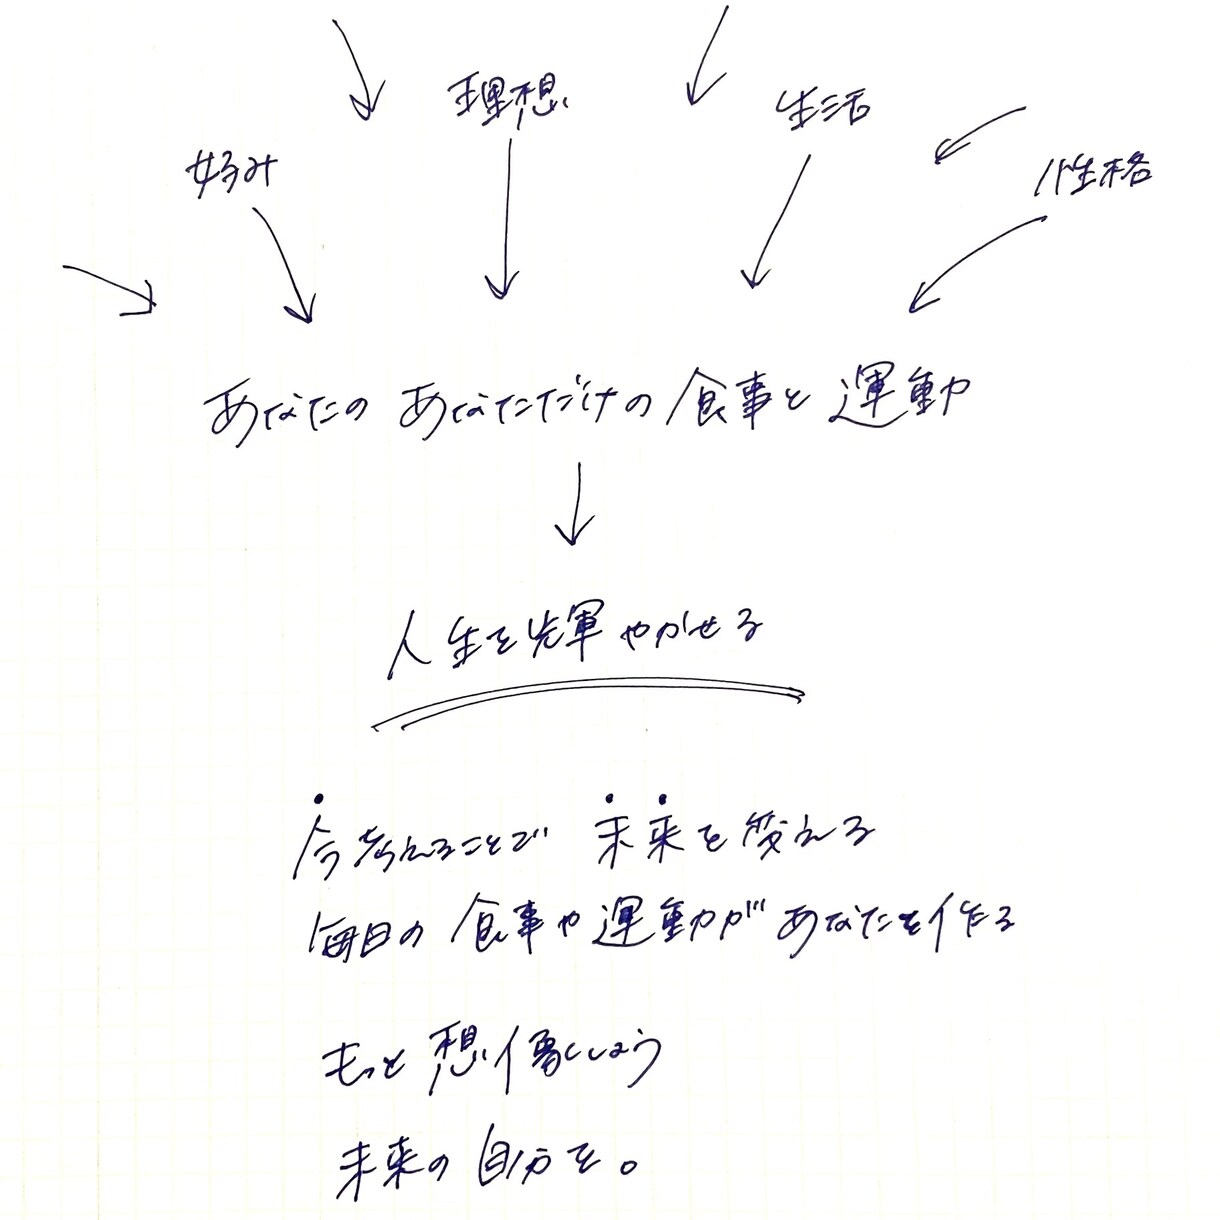 理想
生活
好み
性格
あなたの あなただけの 食事と 運動
人生を輝やかせる
今考えることで 未来を変える
毎日の 食事や運動が あなたを作る
もっと 想像しよう
未来の 自分を。